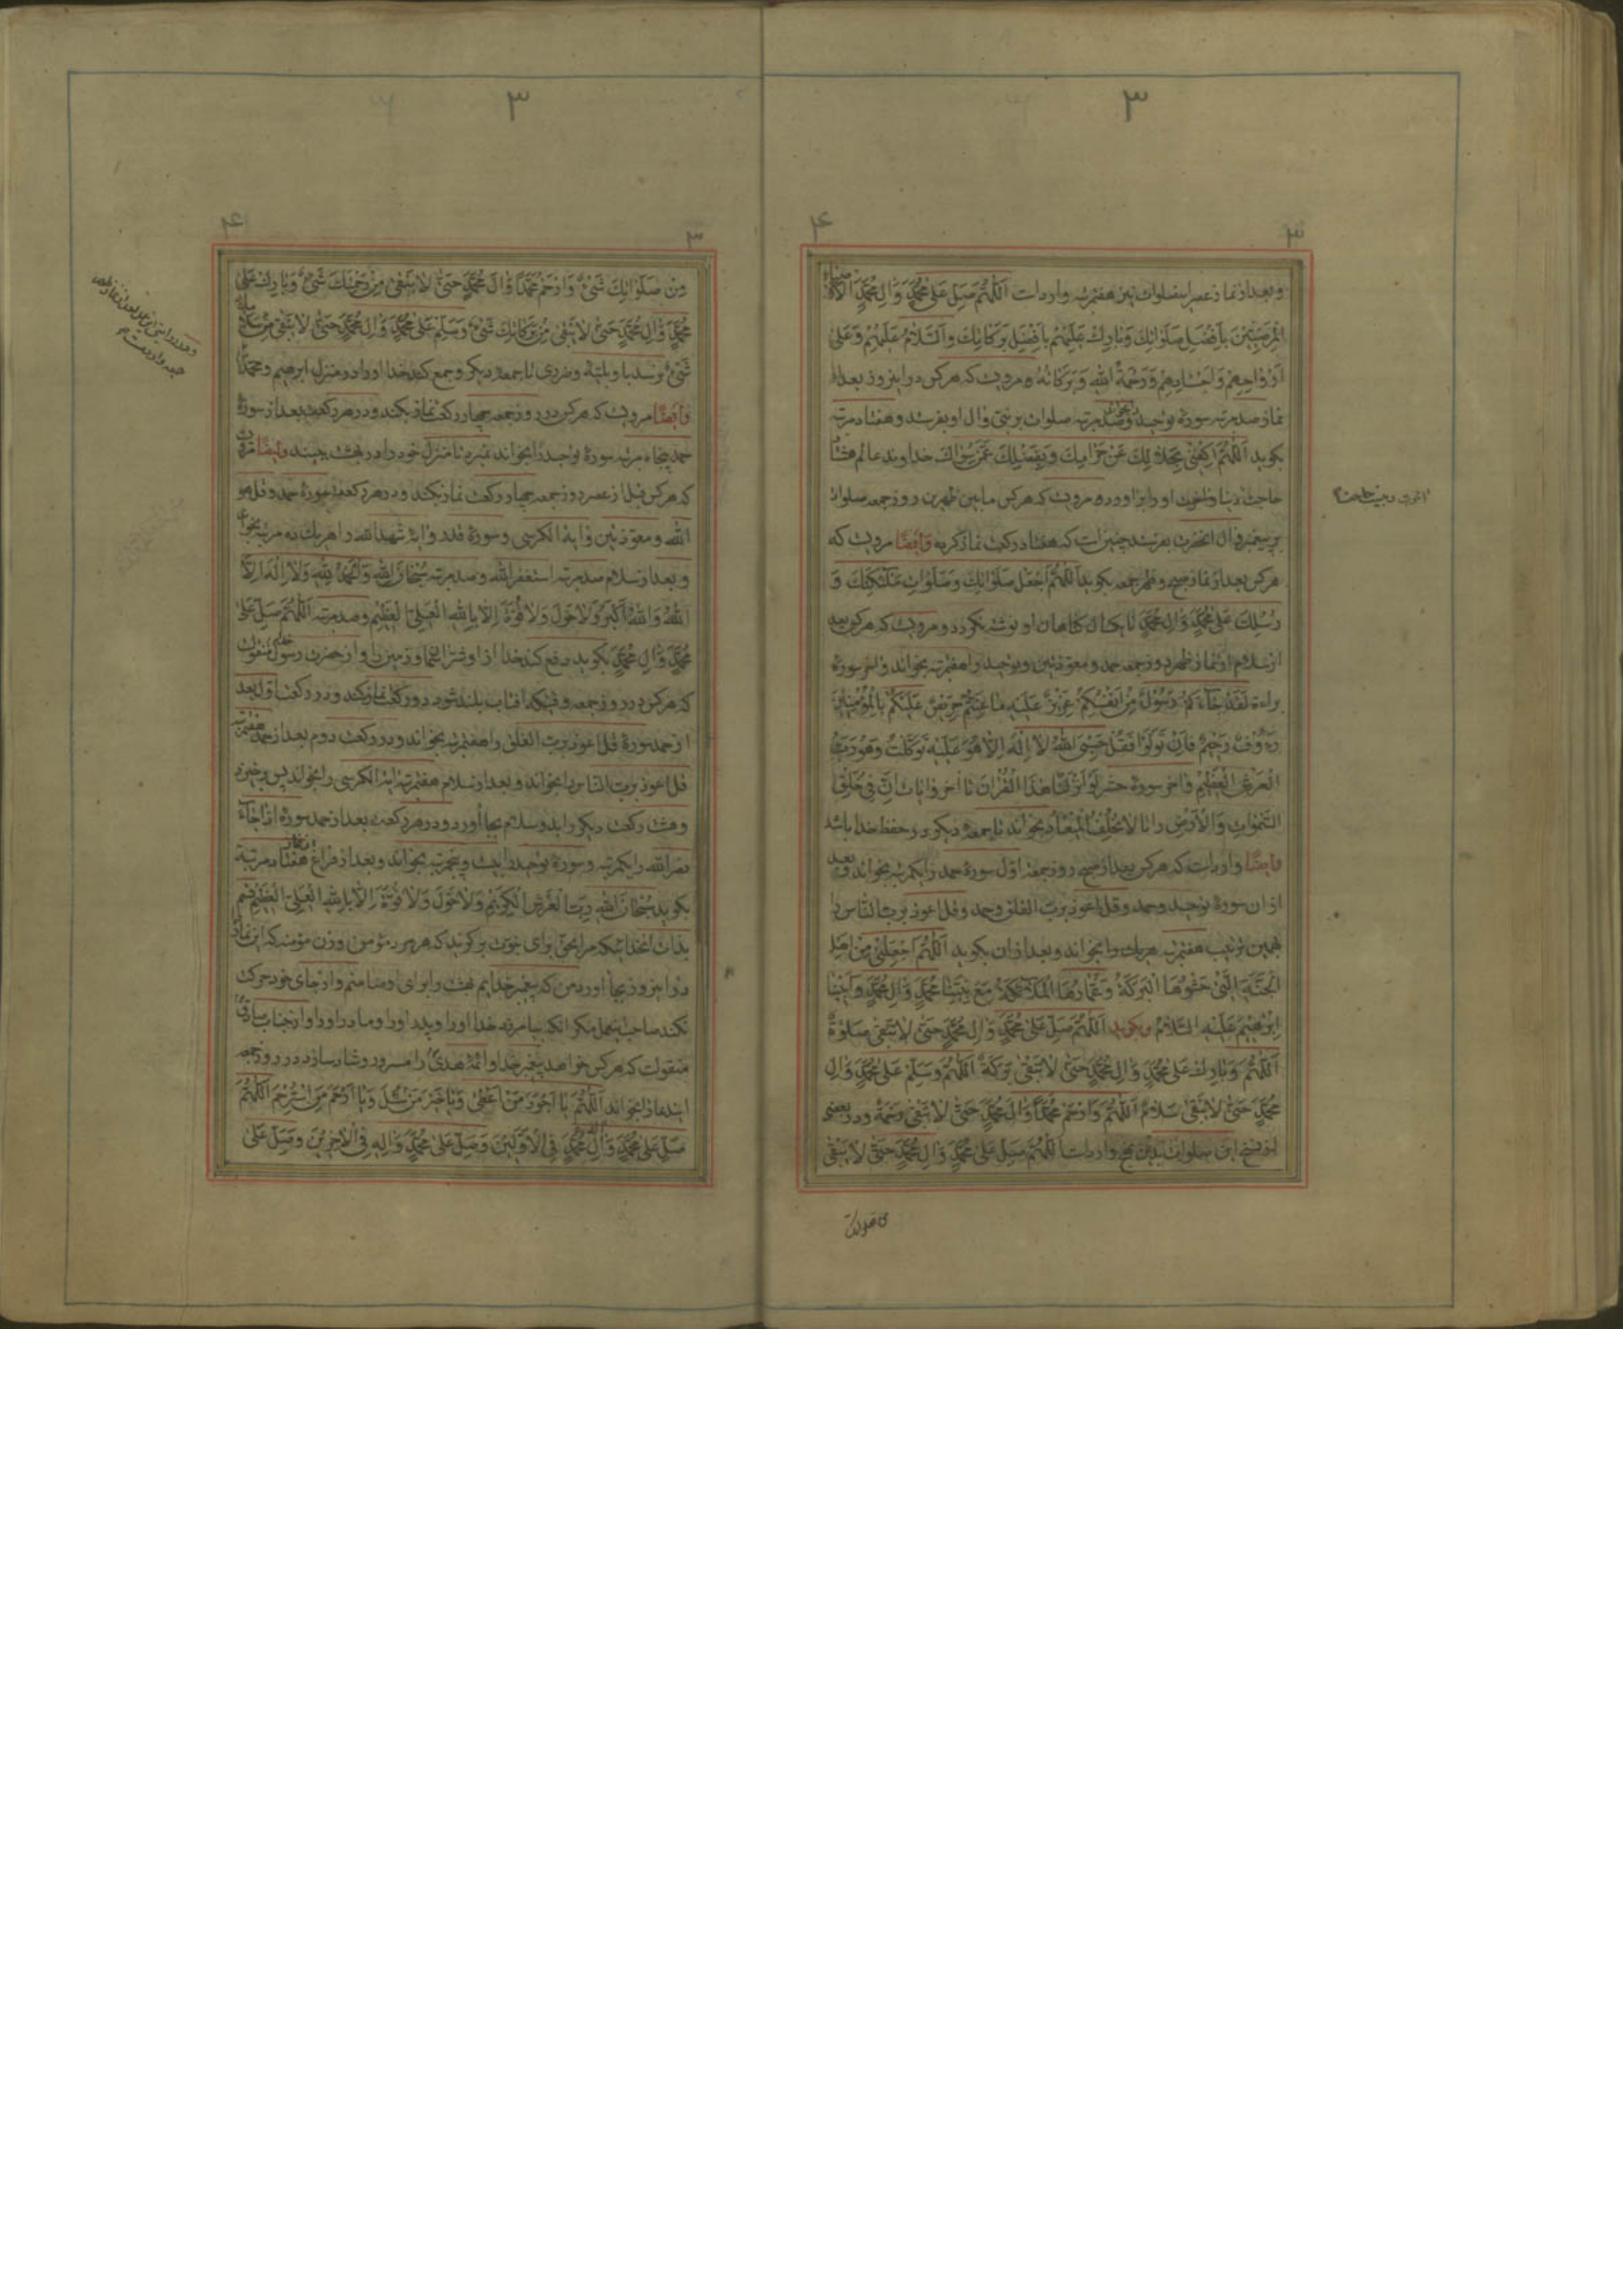 ٣
٣
٤
و بعد از نماز عصر این صلوات نیز هفتمرتبه وارد است اَللّٰهُمَّ صَلِّ عَلٰى مُحَمَّدٍ وَاٰلِ مُحَمَّدٍ الْاَوْصِيَاءِ
الْمَرْضِيّٖينَ بِاَفْضَلِ صَلَوَاتِكَ وَبَارِكْ عَلَيْهِمْ بِاَفْضَلِ بَرَكَاتِكَ وَالسَّلَامُ عَلَيْهِمْ وَعَلٰى
اَرْوَاحِهِمْ وَاَجْسَادِهِمْ وَرَحْمَةُ اللهِ وَبَرَكَاتُهُ و مرویست که هر کس در این روز بعد از
نماز صد مرتبه سورهٔ توحید بخواند و صد مرتبه صلوات بر نبی و ال او بفرستد و هفتاد مرتبه
بکوید اَللّٰهُمَّ اكْفِنِي بِحَلَالِكَ عَنْ حَرَامِكَ وَبِفَضْلِكَ عَمَّنْ سِوَاكَ خداوند عالم هشتاد
حاجت دنیا و اخرت او را براورد و مرویست که هر کس ما بین ظهرین روز جمعه صلوات
بر پیغمبر و ال انحضرت بفرستد چنین است که هفتاد رکعت نماز کرده وَايضًا مرویست که
هر کس بعد از نماز صبح و ظهر جمعه بکوید اَللّٰهُمَّ اجْعَلْ صَلَوَاتِكَ وَصَلَوَاتِ مَلٰئِكَتِكَ وَ
رُسُلِكَ عَلٰى مُحَمَّدٍ وَاٰلِ مُحَمَّدٍ تا یکسال کناهان او نوشته نکردد و مرویست که هر کس بعد
از سلام از نماز ظهر روز جمعه حمد و معوذتین و توحید را هفتمرتبه بخواند و اخر سورهٔ
براءة لَقَدْ جَاءَكُمْ رَسُولٌ مِنْ اَنْفُسِكُمْ عَزِيزٌ عَلَيْهِ مَا عَنِتُّمْ حَرِيصٌ عَلَيْكُمْ بِالْمُؤْمِنِينَ
رَءُوفٌ رَحِيمٌ فَاِنْ تَوَلَّوْا فَقُلْ حَسْبِيَ اللهُ لَا اِلٰهَ اِلَّا هُوَ عَلَيْهِ تَوَكَّلْتُ وَهُوَ رَبُّ
الْعَرْشِ الْعَظِيمِ و اخر سورهٔ حشر لَوْ اَنْزَلْنَا هٰذَا الْقُرْاٰنَ تا اخر و ایات اِنَّ فِي خَلْقِ
السَّمٰوَاتِ وَالْاَرْضِ را تا لَا تُخْلِفُ الْمِيعَادَ بخواند تا جمعهٔ دیکر در حفظ خدا باشد
وَايضًا وارد است که هر کس بعد از صبح روز جمعه اول سورهٔ حمد را یکمرتبه بخواند و بعد
از ان سورهٔ توحید و حمد و قل اعوذ برب الفلق و حمد و قل اعوذ برب الناس را
بهمین ترتیب هفتمرتبه هر یک را بخواند و بعد از ان بکوید اَللّٰهُمَّ اجْعَلْنِي مِنْ اَهْلِ
الْجَنَّةِ الَّتِي حَشْوُهَا الْبَرَكَةُ وَعُمَّارُهَا الْمَلٰئِكَةُ مَعَ نَبِيِّنَا مُحَمَّدٍ وَاٰلِ مُحَمَّدٍ وَاَبِينَا
اِبْرٰهِيمَ عَلَيْهِ السَّلَامُ و بکوید اَللّٰهُمَّ صَلِّ عَلٰى مُحَمَّدٍ وَاٰلِ مُحَمَّدٍ حَتّٰى لَا تَبْقٰى صَلٰوةٌ
اَللّٰهُمَّ وَبَارِكْ عَلٰى مُحَمَّدٍ وَاٰلِ مُحَمَّدٍ حَتّٰى لَا تَبْقٰى بَرَكَةٌ اَللّٰهُمَّ وَسَلِّمْ عَلٰى مُحَمَّدٍ وَاٰلِ
مُحَمَّدٍ حَتّٰى لَا يَبْقٰى سَلَامٌ اَللّٰهُمَّ وَارْحَمْ مُحَمَّدًا وَاٰلَ مُحَمَّدٍ حَتّٰى لَا تَبْقٰى رَحْمَةٌ و در بعضی
از نسخ این صلوات بدین نهج وارد است اَللّٰهُمَّ صَلِّ عَلٰى مُحَمَّدٍ وَاٰلِ مُحَمَّدٍ حَتّٰى لَا يَبْقٰى
من صلواتک
٣
٣
٤
مِنْ صَلَوَاتِكَ شَيْءٌ وَارْحَمْ مُحَمَّدًا وَاٰلَ مُحَمَّدٍ حَتّٰى لَا يَبْقٰى مِنْ رَحْمَتِكَ شَيْءٌ وَبَارِكْ عَلٰى
مُحَمَّدٍ وَاٰلِ مُحَمَّدٍ حَتّٰى لَا يَبْقٰى مِنْ بَرَكَاتِكَ شَيْءٌ وَسَلِّمْ عَلٰى مُحَمَّدٍ وَاٰلِ مُحَمَّدٍ حَتّٰى لَا يَبْقٰى مِنْ سَلَامِكَ
شَيْءٌ نرسد باو بلیّه و ضرری تا جمعهٔ دیکر و جمع کند خدا او را در منزل ابرهیم و محمد
وَايضًا مرویست که هر کس در روز جمعه چهار رکعت نماز بکند و در هر رکعت بعد از سورهٔ
حمد پنجاه مرتبه سورهٔ توحید را بخواند نمیرد تا منزل خود را در بهشت ببیند وايضًا مرویست
که هر کس قبل از عصر روز جمعه چهار رکعت نماز بکند و در هر رکعت سورهٔ حمد و قل هو
الله و معوذتین و ایة الکرسی و سورهٔ قدر و ایهٔ شهد الله را هر یک ده مرتبه بخواند
و بعد از سلام صد مرتبه استغفر الله و صد مرتبه سُبْحَانَ اللهِ وَالْحَمْدُ لِلّٰهِ وَلَا اِلٰهَ اِلَّا
اللهُ وَاللهُ اَكْبَرُ وَلَا حَوْلَ وَلَا قُوَّةَ اِلَّا بِاللهِ الْعَلِيِّ الْعَظِيمِ و صد مرتبه اَللّٰهُمَّ صَلِّ عَلٰى
مُحَمَّدٍ وَاٰلِ مُحَمَّدٍ بکوید دفع کند خدا از او شر اهل سما و زمین را و از حضرت رسول خدا منقولست
که هر کس در روز جمعه وقتیکه افتاب بلند شود دو رکعت نماز کند و در رکعت اول بعد
از حمد سورهٔ قل اعوذ برب الفلق را هفتمرتبه بخواند و در رکعت دوم بعد از حمد هفتمرتبه
قل اعوذ برب الناس را بخواند و بعد از سلام هفتمرتبه ایة الکرسی را بخواند پس برخیزد
و هشت رکعت دیکر را بدو سلام بجا آورد و در هر رکعت بعد از حمد سورهٔ اذا جاء
نصر الله را یکمرتبه و سورهٔ توحید را بیست و پنجمرتبه بخواند و بعد از فراغ از نماز هفتاد مرتبه
بکوید سُبْحَانَ اللهِ رَبِّ الْعَرْشِ الْكَرِيمِ وَلَا حَوْلَ وَلَا قُوَّةَ اِلَّا بِاللهِ الْعَلِيِّ الْعَظِيمِ قسم
بذات انخدائیکه مرا بحق برای نبوت برکزید که هر مرد مؤمن و زن مؤمنه که این نماز
را در این روز بجا اورد من که پیغمبر خدایم بهشت را برای او ضامنم و از جای خود حرکت
نکند صاحب عمل مکر انکه بیامرزد خدا او را و پدر او را و مادر او را و از جناب صادق
منقولست که هر کس خواهد پیغمبر خدا و ائمهٔ هدیٰ را مسرور و شاد سازد در روز جمعه
ایندعا را بخواند اَللّٰهُمَّ يَا اَجْوَدَ مَنْ اَعْطٰى وَيَا خَيْرَ مَنْ سُئِلَ وَيَا اَرْحَمَ مَنِ اسْتُرْحِمَ اَللّٰهُمَّ
صَلِّ عَلٰى مُحَمَّدٍ وَاٰلِ مُحَمَّدٍ فِي الْاَوَّلِينَ وَصَلِّ عَلٰى مُحَمَّدٍ وَاٰلِهِ فِي الْاٰخِرِينَ وَصَلِّ عَلٰى